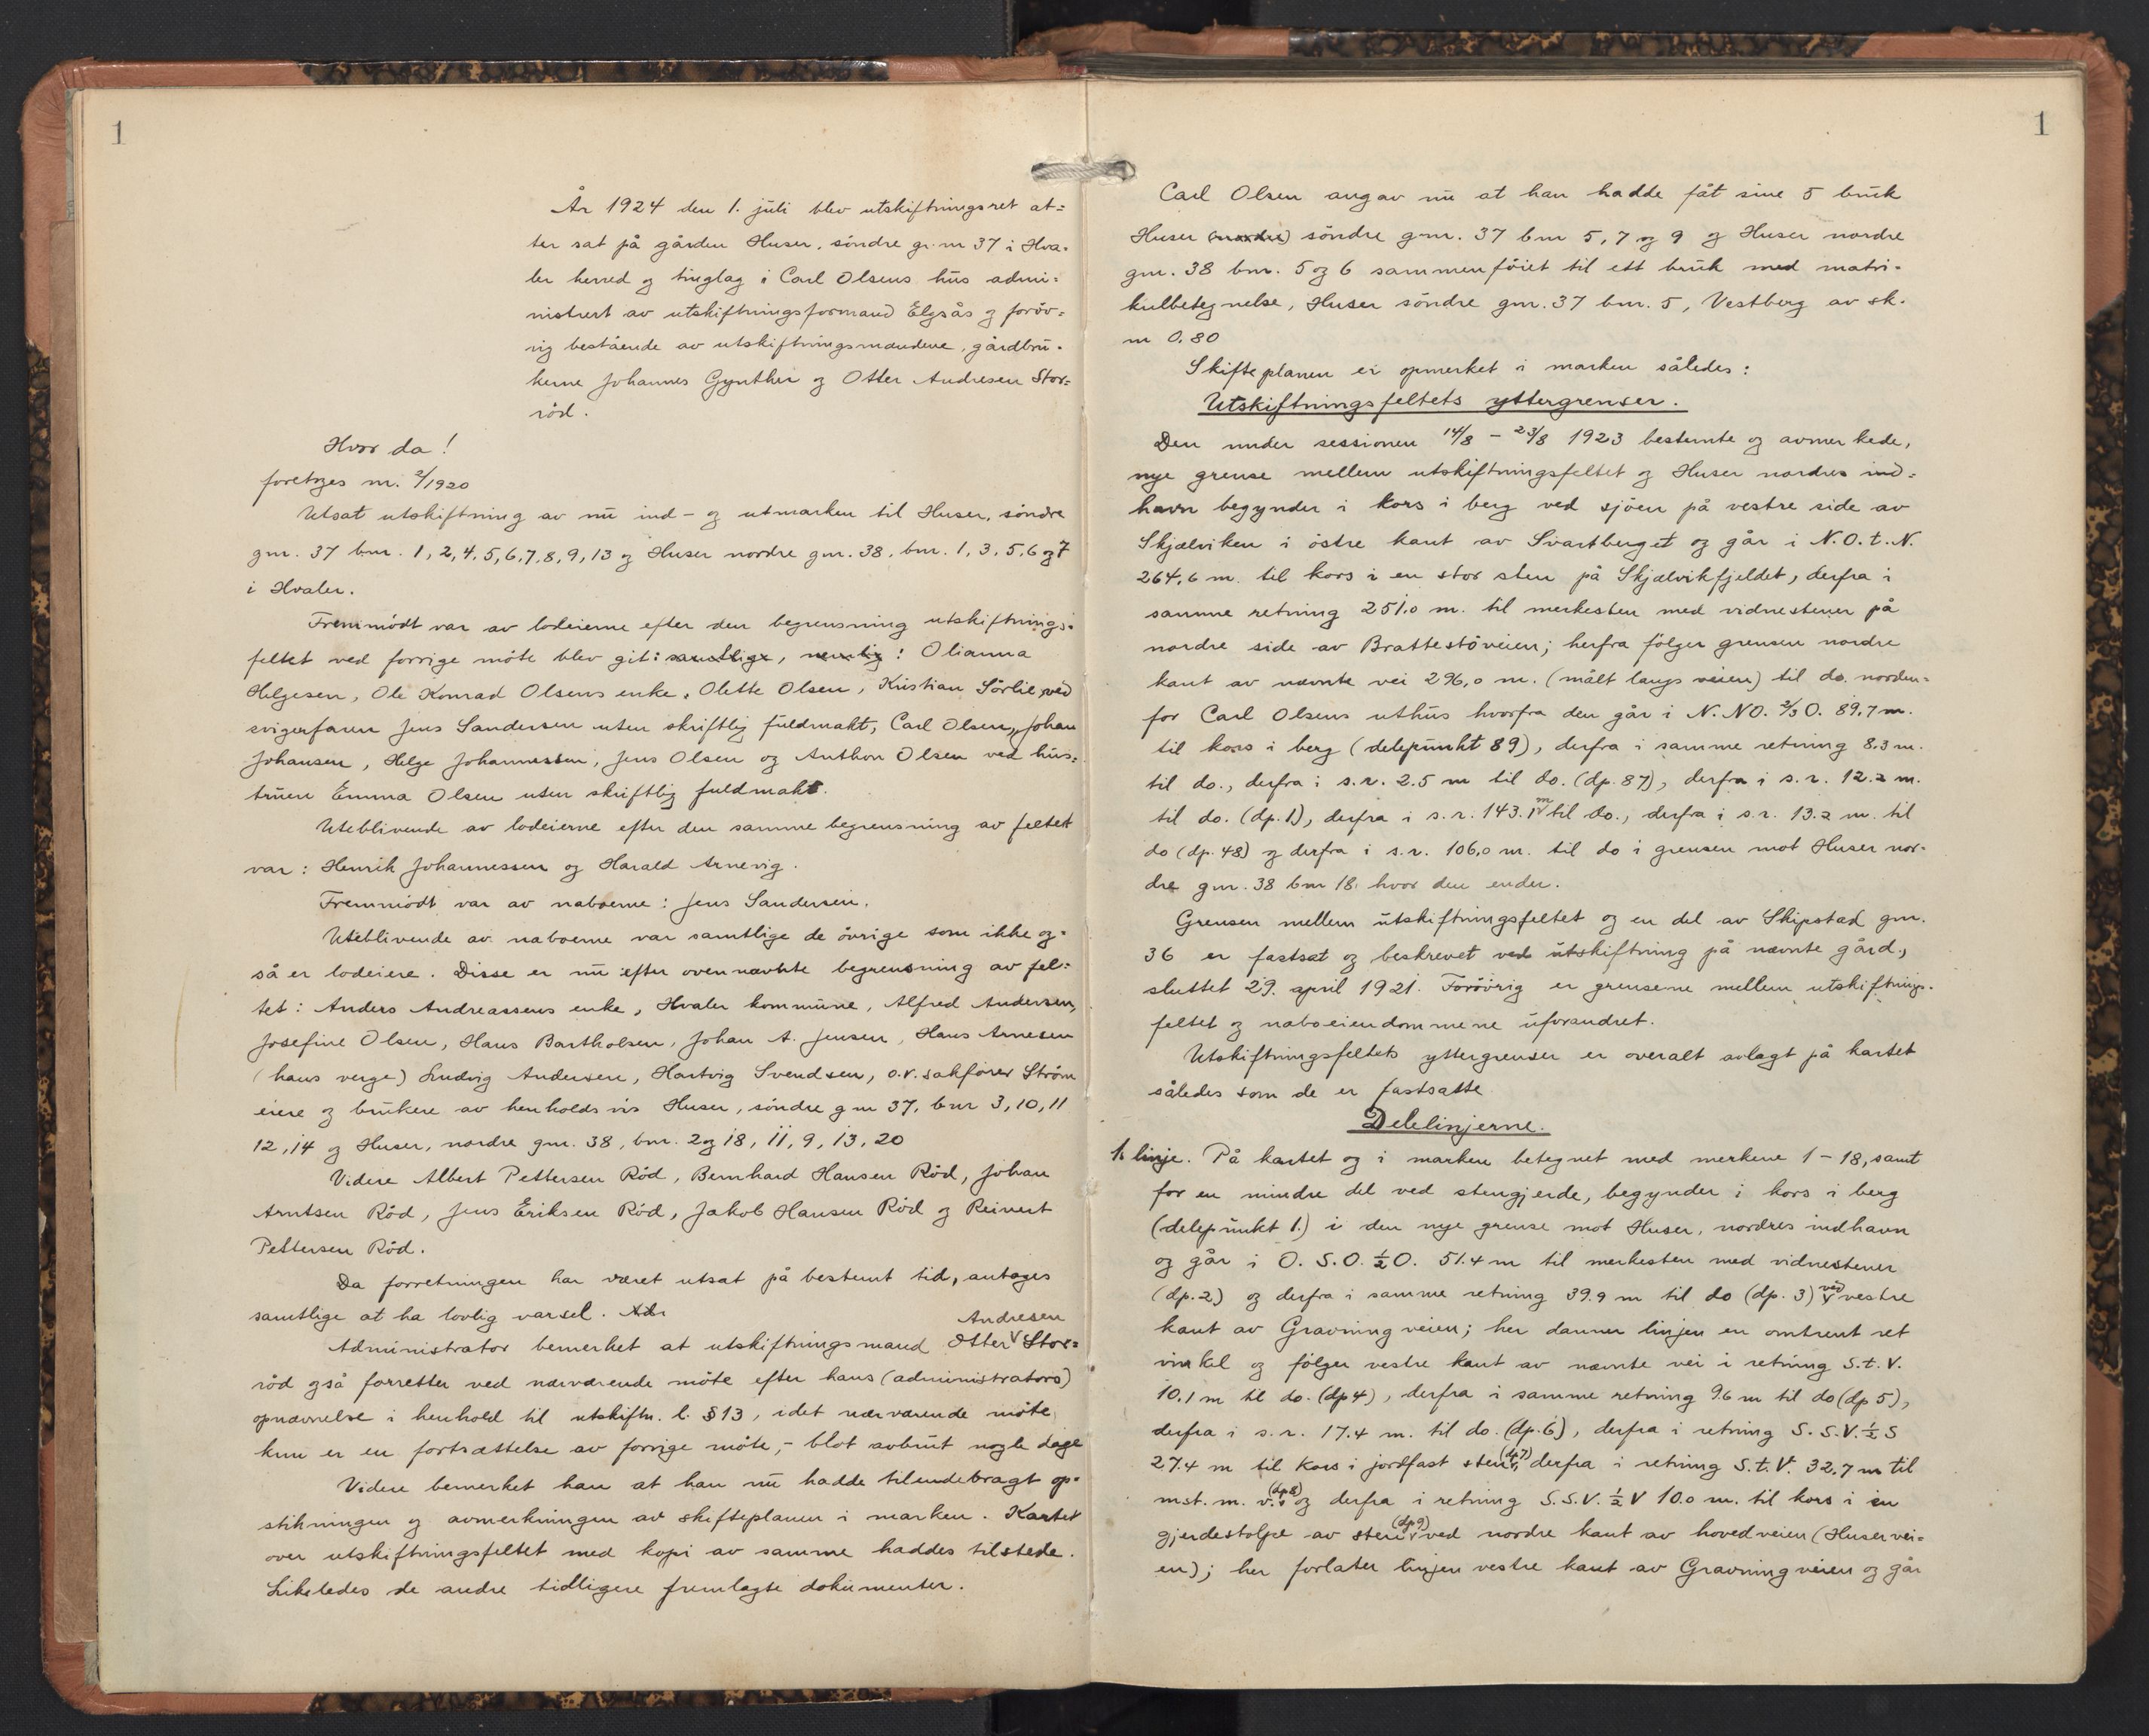 1
År 1924 den 1. juli blev utskiftningsret at=
ter sat på gården Huser, söndre gr. nr 37 i Hva-
ler herred og tinglag i Carl Olsens hus admi-
nistrert av utskiftningsformand Elgsås og foröv-
rig bestående av utskiftningsmændene, gårdbru-
kerne Johannes Gynther og Otter Andresen Stor-
röd.
Hvor da!
foretoges nr. 2/1920
Utsat utskiftning av nu ind- og utmarken til Huser, söndre
gnr. 37 bnr. 1, 2, 4, 5, 6, 7, 8, 9, 13 og Huser nordre gnr. 38, bnr. 1, 3, 5, 6 og 7
i Hvaler.
Fremmödt var av lodeierne efter den begrensning utskiftnings-
feltet ved forrige möte blev git: samtlige, nemlig: Olianna
Helgesen, Ole Konrad Olsens enke, Olette Olsen, Kristian Sörlie ved
svigerfaren Jens Sandersen uten skriftlig fuldmakt, Carl Olsen, Johan
Johansen, Helge Johannessen, Jens Olsen og Anthon Olsen ved hus-
truen Emma Olsen uten skriftlig fuldmakt.
Uteblivende av lodeierne efter den samme begrensning av feltet
var: Henrik Johannessen og Harald Arnevig.
Fremmödt var av naboerne: Jens Sandersen.
Uteblivende av naboerne var samtlige de övrige som ikke og-
så er lodeiere. Disse er nu efter ovennævnte begrensning av fel-
tet: Anders Andreassens enke, Hvaler kommune, Alfred Andersen,
Josefine Olsen, Hans Bartholsen, Johan A. Jensen, Hans Arnesen
(hans verge) Ludvig Andersen, Hartvig Svendsen, o.r. sakförer Ström
eiere og brukere av henholdsvis Huser, söndre gnr 37, bnr 3, 10, 11
12, 14 og Huser, nordre gnr. 38, bnr. 2 og 18, 11, 9, 13, 20
Videre Albert Pettersen Röd, Bernhard Hansen Röd, Johan
Arntsen Röd, Jens Eriksen Röd, Jakob Hansen Röd og Reinert
Pettersen Röd.
Da forretningen har været utsat på bestemt tid, antages
samtlige at ha lovlig varsel. Adr
Administrator bemerket at utskiftningsmand Otter Andresen Stor-
röd også forretter ved nærværende möte efter hans (administrators)
opnævnelse i henhold til utskiftn. l. § 13, idet nærværende möte
kun er en fortsættelse av forrige möte, - blot avbrut nogle dage
Videre bemerket han at han nu hadde tilendebragt op-
stikningen og avmerkningen av skifteplanen i marken. Kartet
over utskiftningsfeltet med kopi av samme haddes tilstede.
Likeledes de andre tidligere fremlagte dokumenter.
1
Carl Olsen angav nu at han hadde fåt sine 5 bruk
Huser (nordre) söndre gnr. 37 bnr 5, 7 og 9 og Huser nordre
gnr. 38 bnr. 5 og 6 sammenföiet til ett bruk med matri-
kulbetegnelse, Huser söndre gnr. 37 bnr. 5, Vestberg av sk.
m 0.80
Skifteplanen er opmerket i marken således:
Utskiftningsfeltets yttergrenser.
Den under sessionen 14/8 - 23/8 1923 bestemte og avmerkede,
nye grense mellem utskiftningsfeltet og Huser nordres ind-
havn begynder i kors i berg ved sjöen på vestre side av
Skjælviken i östre kant av Svartberget og går i N.O.t.N.
264,6 m. til kors i en stor sten på Skjælvikfjeldet, derfra i
samme retning 251,0 m. til merkesten med vidnestener på
nordre side av Brattestöveien; herfra fölger grensen nordre
kant av nævnte vei 296,0 m. (målt langs veien) til do. norden-
for Carl Olsens uthus hvorfra den går i N.NO. 2/3 O. 89,7 m.
til kors i berg (delepunkt 89), derfra i samme retning 8.3 m.
til do., derfra i s.r. 2.5 m til do. (dp. 87), derfra i s.r. 12.2 m.
til do. (dp. 1), derfra i s.r. 143.1 m til do., derfra i s.r. 13.2 m. til
do (dp. 48) og derfra i s.r. 106,0 m. til do i grensen mot Huser nor-
dre gnr. 38 bnr 18, hvor den ender.
Grensen mellem utskiftningsfeltet og en del av Skipstad gnr.
36 er fastsat og beskrevet ved utskiftning på nævnte gård,
sluttet 29. april 1921. Forövrig er grensene mellem utskiftnings-
feltet og naboeiendommene uforandret.
Utskiftningsfeltets yttergrenser er overalt avlagt på kartet
således som de er fastsatte
Delelinjerne.
1. linje. På kartet og i marken betegnet med merkene 1-18, samt
for en mindre del ved stengjerde, begynder i kors i berg
(delepunkt 1.) i den nye grense mot Huser, nordres indhavn
og går i O.S.O. 1/2 O. 51.4 m til merkesten med vidnestener
(dp. 2) og derfra i samme retning 39.9 m til do (dp. 3) ved vestre
kant av Gravningveien; her danner linjen en omtrent ret
vinkel og fölger vestre kant av nævnte vei i retning S.t.V.
10.1 m til do. (dp 4), derfra i samme retning 9.6 m til do (dp 5),
derfra i s.r. 17.4 m. til do. (dp. 6), derfra i retning S.S.V. 1/2 S
27.4 m til kors i jordfast sten (dp 7), derfra i retning S.t.V. 32,7 m til
mst. m. v. s (dp 8) og derfra i retning S.S.V. 1/2 V 10.0 m. til kors i en
gjerdestolpe av sten (dp 9) ved nordre kant av hovedveien (Huservei-
en); her forlater linjen vestre kant av Gravningveien og går